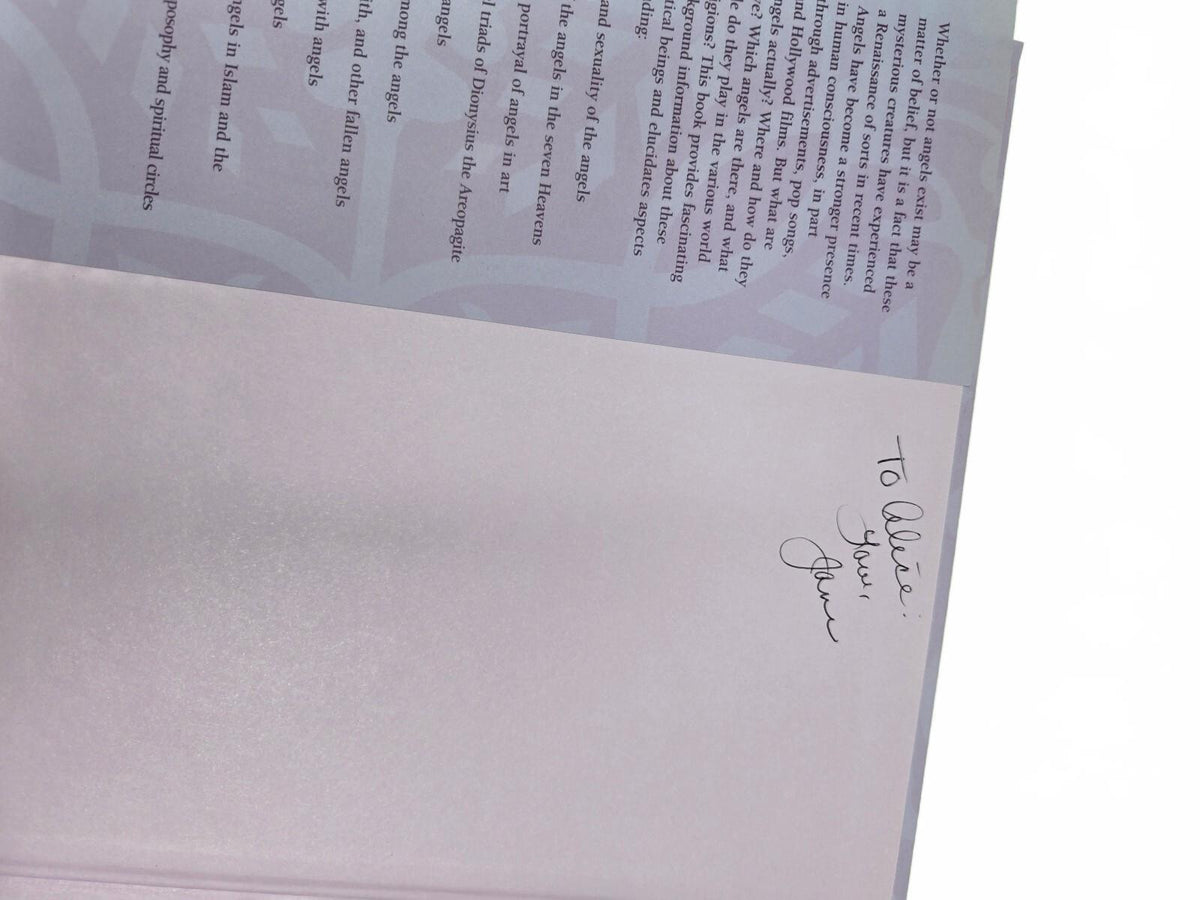 Whether or not angels exist may be a
matter of belief, but it is a fact that these
mysterious creatures have experienced
a Renaissance of sorts in recent times.
Angels have become a stronger presence
in human consciousness, in part
through advertisements, pop songs,
nd Hollywood films. But what are
ngels actually? Where and how do they
e? Which angels are there, and what
le do they play in the various world
igions? This book provides fascinating
kground information about these
tical beings and elucidates aspects
ding:
and sexuality of the angels
the angels in the seven Heavens
portrayal of angels in art
l triads of Dionysius the Areopagite
angels
mong the angels
ith, and other fallen angels
with angels
gels
ngels in Islam and the
posophy and spiritual circles
To Alice:
Your,
Jane